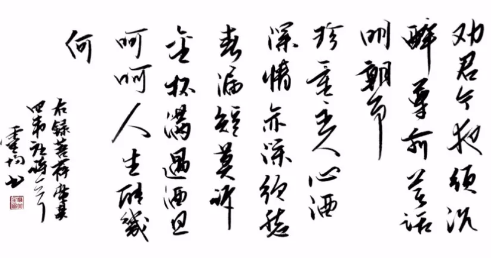 劝君今夜须沉
醉尊前莫话
明朝事
珍重主人心酒
深情亦深须愁
春漏短莫诉
金杯满遇酒且
呵呵人生能幾
何
右录菩萨蛮其
四韦庄诗一首